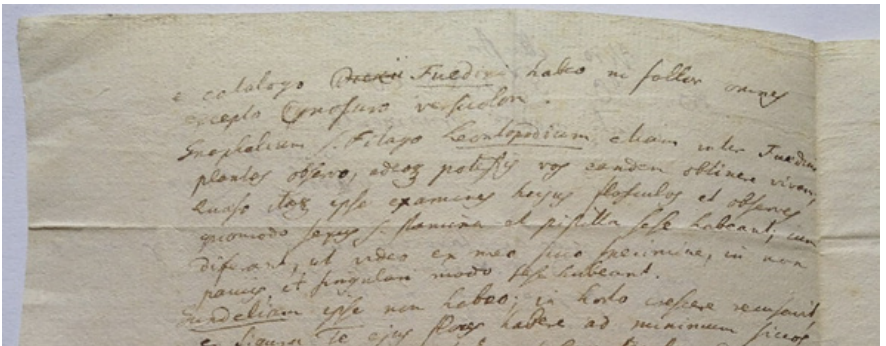 e catalogo Fuedini habeo ni fallor omnes
excepto Cynosuro versicolori.
Gnaphalium s. Filago Leontopodium, etiam inter Fuedini
plantas observo, adeoq potestis vos eandem obtinere vivam,
quaso itaq ipse examines hojus flosculos et observes
quomodo sexus s. stamina et pistilla sese habeant; cum
differant, ut video ex meo sicco specimine, in non
paucis et singulari modo sese habeant.
Gundeliam ipse non habeo; in horto crescere recusavit,
Te ejus flores habere ad minimum siccos